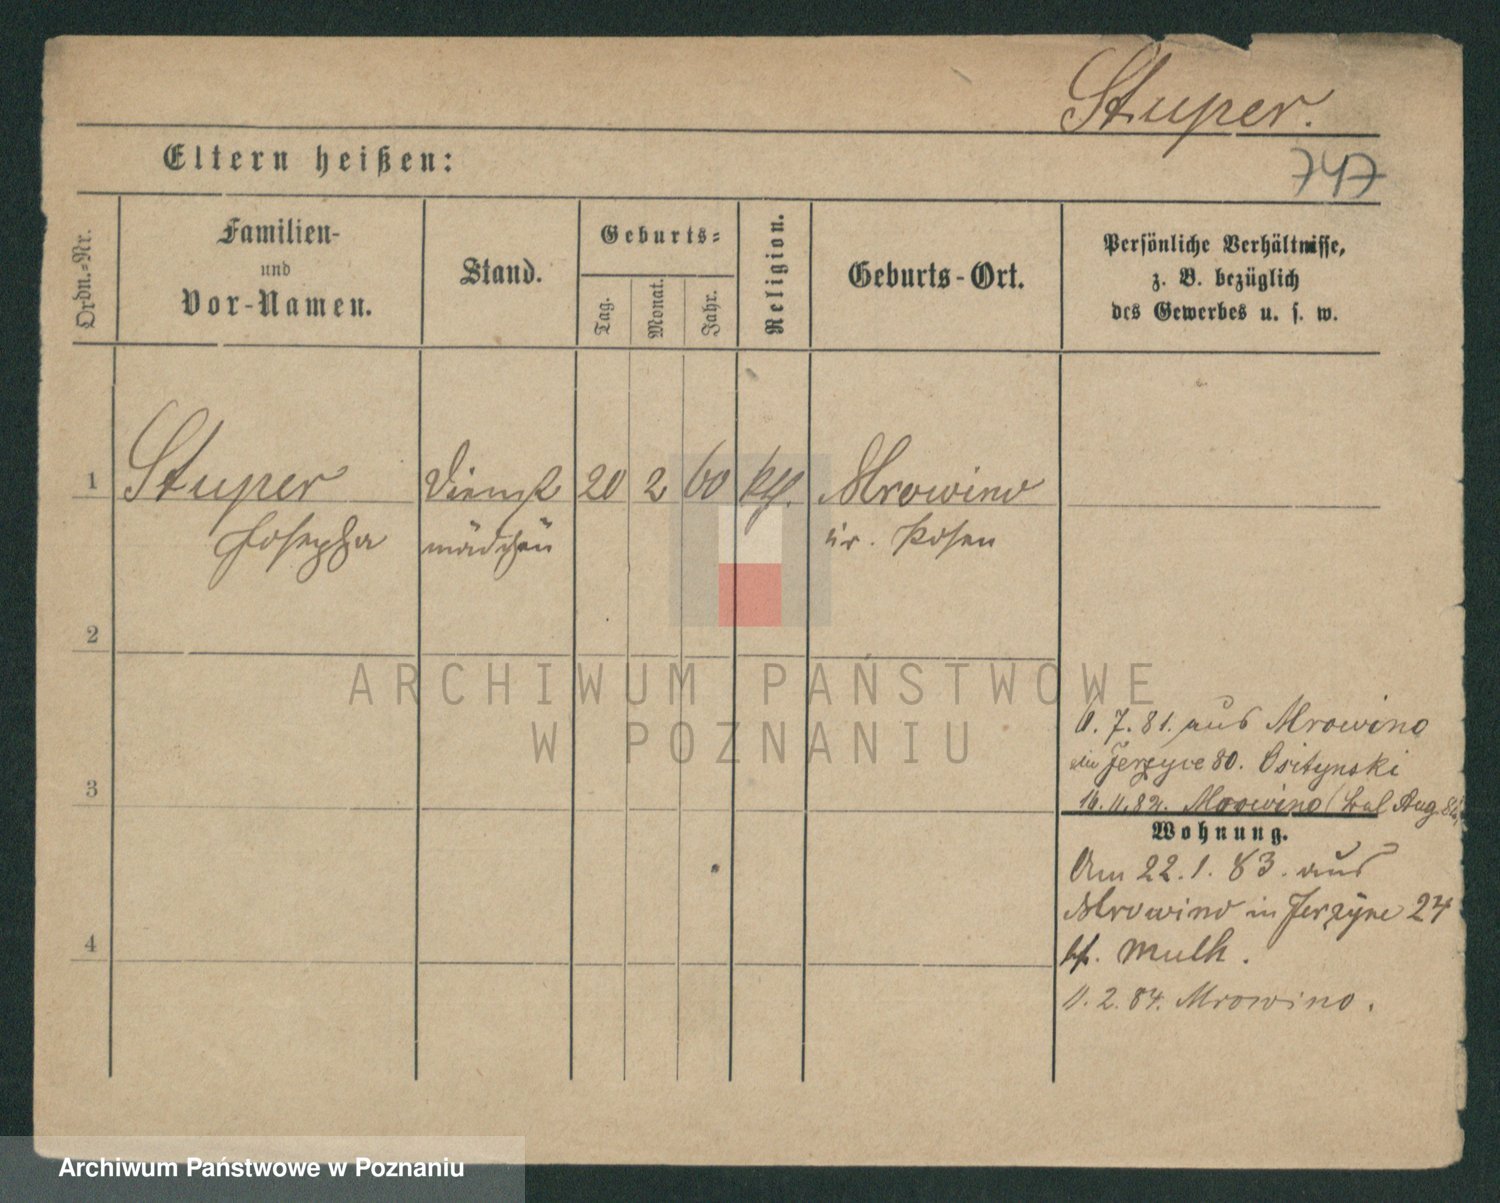 Stuper.
Eltern heißen:
747
Ordn.-Nr.
Familien-
und
Vor-Namen.
Stand.
Geburts-
Tag.
Monat.
Jahr.
Religion.
Geburts-Ort.
Persönliche Verhältnisse,
z. B. bezüglich
des Gewerbes u. s. w.
1
Stuper
Josepha
Dienst
mädchen
20
2
60
kth.
Mrowino
Kr. Posen
2
3
4
7. 81. aus Mrowino
Jerzyce 80.
82. Mrowino
Wohnung.
Am 22. 1. 83. aus
Mrowino in Jerzyce 24
Mulk.
2. 84. Mrowino.
ARCHIWUM PAŃSTWOWE
W POZNANIU
Archiwum Państwowe w Poznaniu